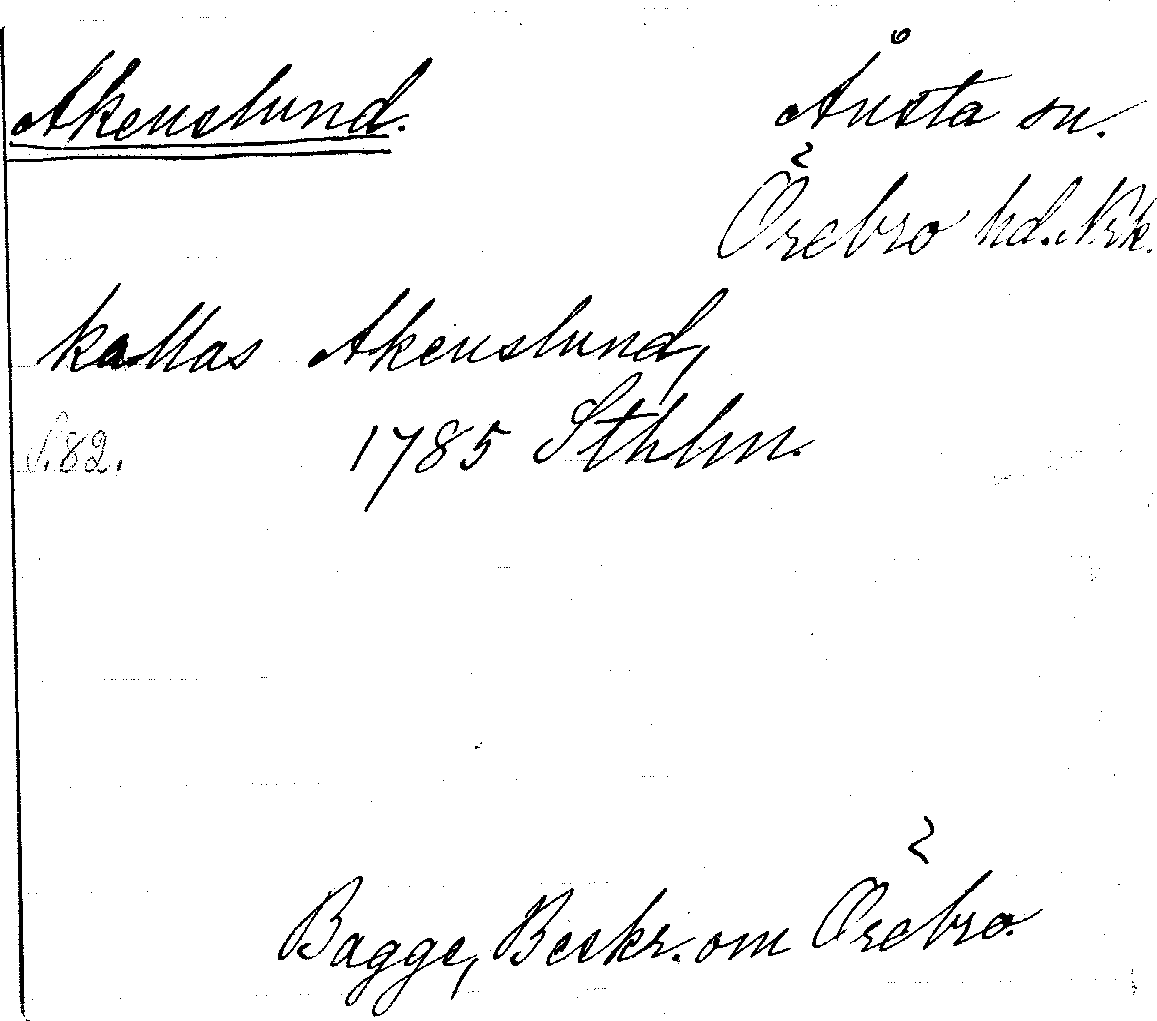 Akenslund. Ånsta sn.
Örebro hd. Nrk.
kallas Akenslund,
S. 82. 1785 Sthlm.
Bagge, Beskr. om Örebro.